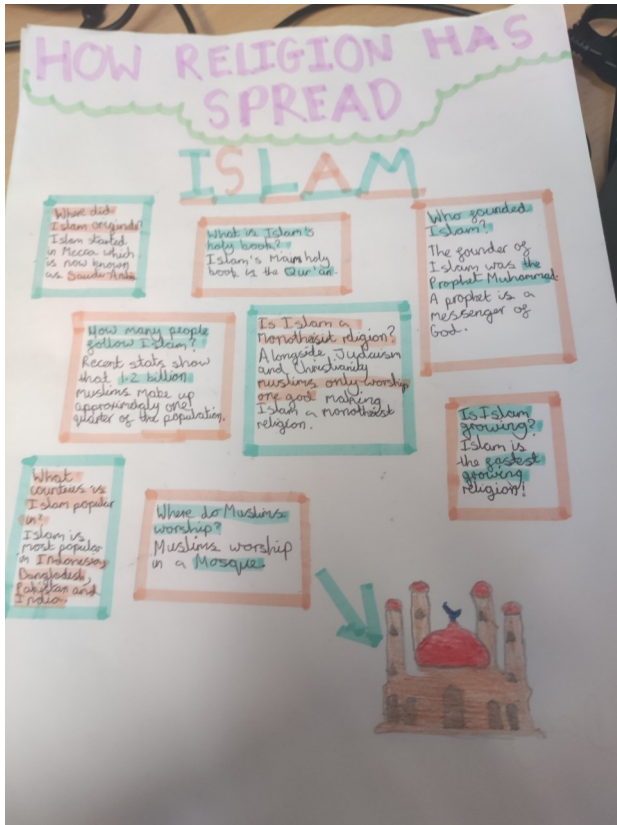 HOW RELIGION HAS
SPREAD
ISLAM
Where did
Islam originate?
Islam started
in Mecca which
is now known
as Saudi Arabia.
What is Islam's
holy book?
Islam's Main holy
book is the Qur'an.
Who founded
Islam?
The founder of
Islam was the
Prophet Muhammad.
A prophet is a
messenger of
God.
How many people
follow Islam?
Recent stats show
that 1.2 billion
Muslims make up
approximatly one
quarter of the population.
Is Islam a
monotheist religion?
Alongside Judaism
and Christianity
muslims only worship
one god making
Islam a monotheist
religion.
Is Islam
growing?
Islam is
the fastest
growing
religion!
What
countries is
Islam popular
in?
Islam is
most popular
in Indonesia,
Bangladesh,
Pakistan and
India.
Where do Muslims
worship?
Muslims worship
in a Mosque.